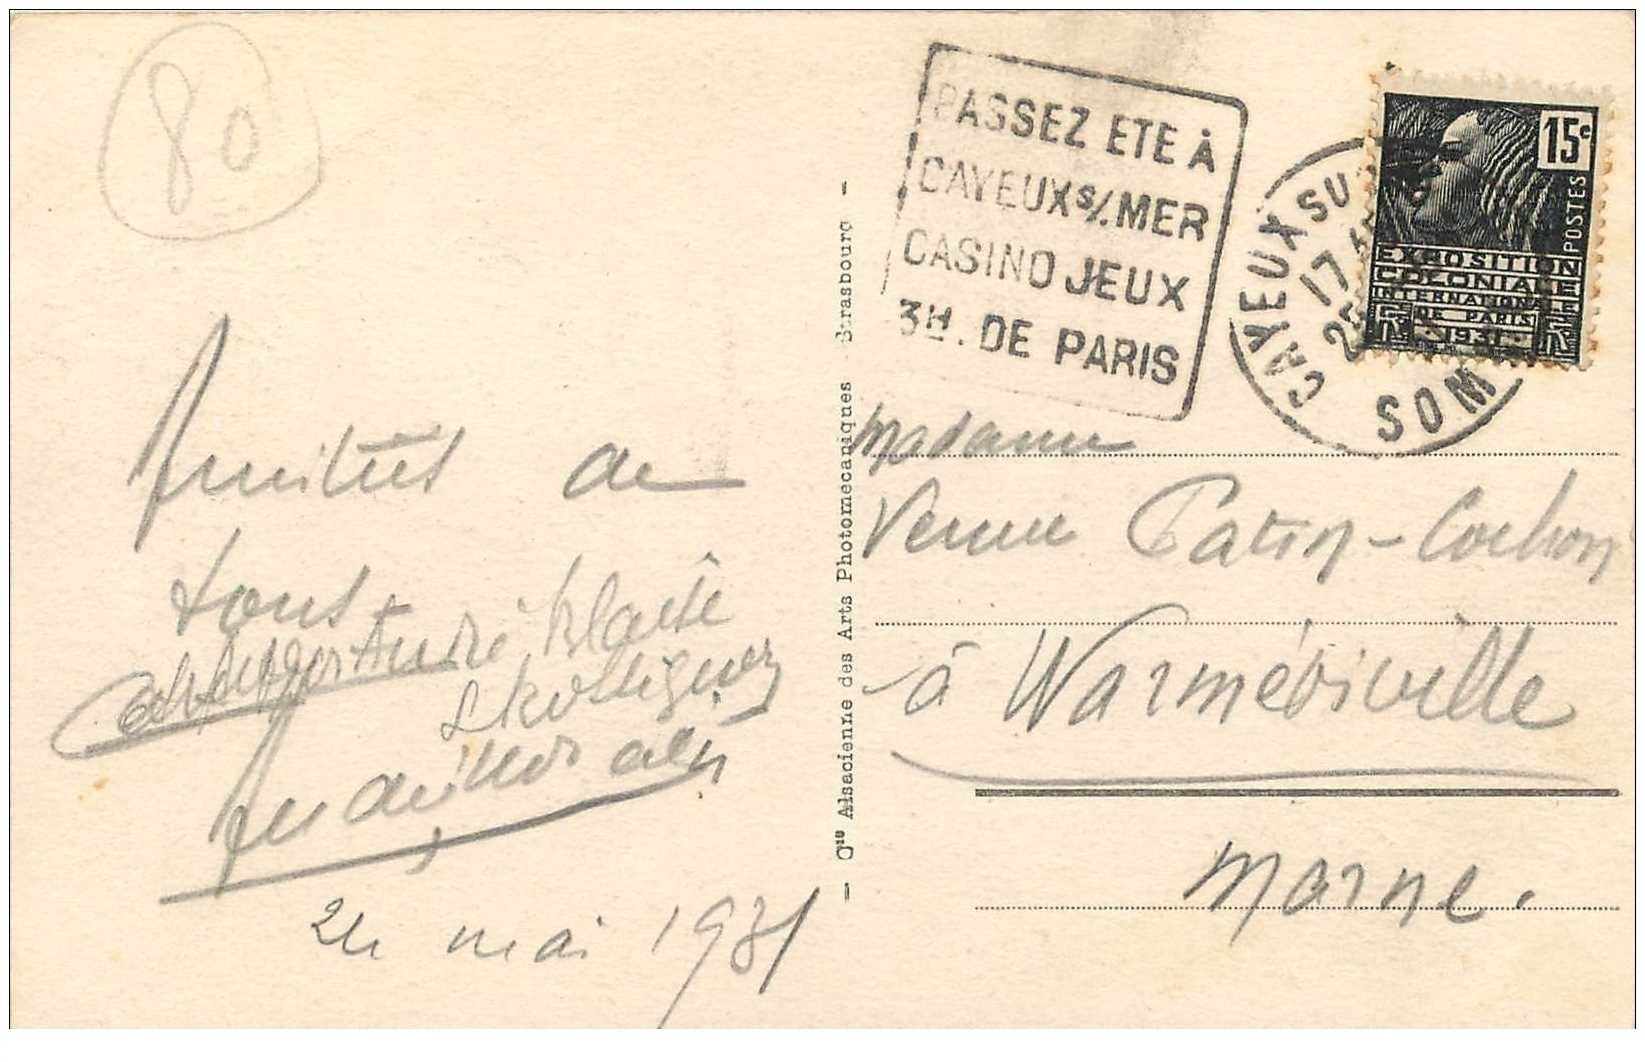 80
PASSEZ ETE À
CAYEUX S/. MER
CASINO JEUX
3H. DE PARIS
CAYEUX SU
17
25
SOM
15c
POSTES
EXPOSITION
COLONIALE
INTERNATIONALE
DE PARIS
1931
— Cie Alsacienne des Arts Photomecaniques Strasbourg —
Amitiés de
tous
André
24 mai 1931
Madame
Veuve Patin-Cochon
à Warmériville
Marne.